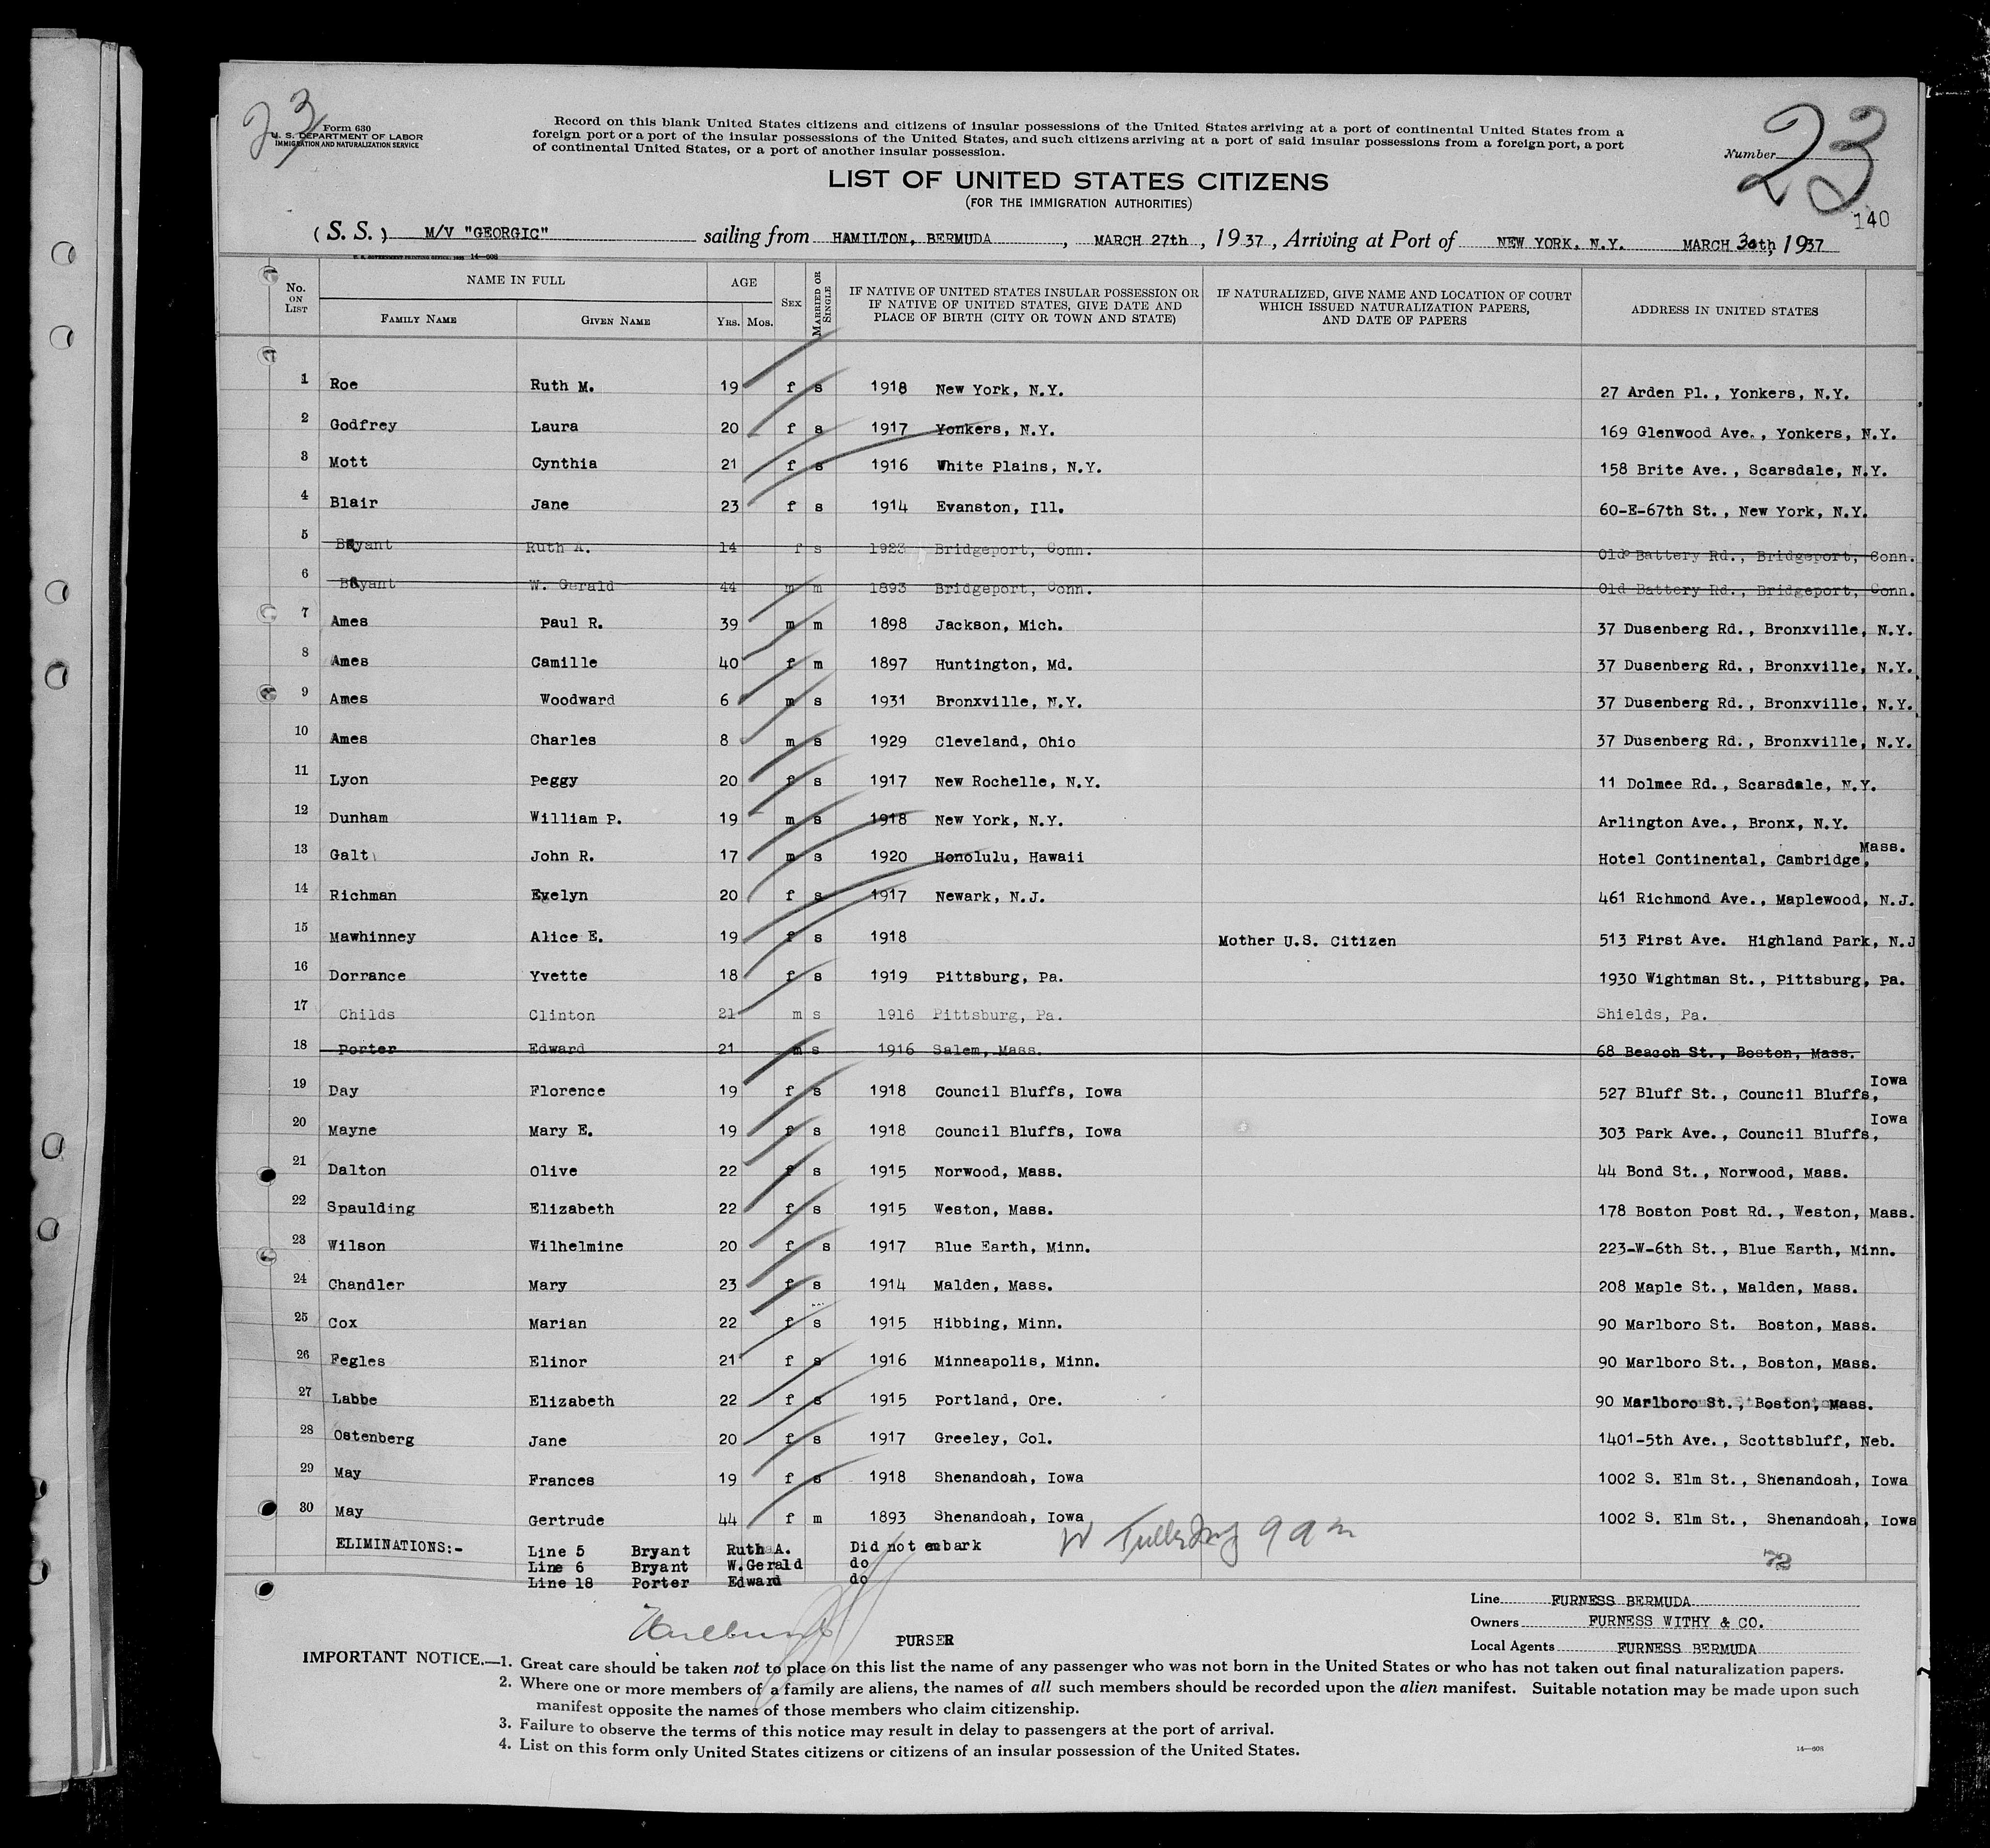 23
Form 630
U. S. DEPARTMENT OF LABOR
IMMIGRATION AND NATURALIZATION SERVICE
Record on this blank United States citizens and citizens of insular possessions of the United States arriving at a port of continental United States from a
foreign port or a port of the insular possessions of the United States, and such citizens arriving at a port of said insular possessions from a foreign port, a port
of continental United States, or a port of another insular possession.
Number 23
LIST OF UNITED STATES CITIZENS
(FOR THE IMMIGRATION AUTHORITIES)
140
(S. S.) M/V "GEORGIC" sailing from HAMILTON, BERMUDA, MARCH 27th, 1937, Arriving at Port of NEW YORK, N.Y. MARCH 30th, 1937
No. ON LIST NAME IN FULL AGE SEX MARRIED OR SINGLE IF NATIVE OF UNITED STATES INSULAR POSSESSION OR IF NATIVE OF UNITED STATES, GIVE DATE AND PLACE OF BIRTH (CITY OR TOWN AND STATE) IF NATURALIZED, GIVE NAME AND LOCATION OF COURT WHICH ISSUED NATURALIZATION PAPERS, AND DATE OF PAPERS ADDRESS IN UNITED STATES
FAMILY NAME GIVEN NAME YRS. MOS.
1 Roe Ruth M. 19 f s 1918 New York, N.Y. 27 Arden Pl., Yonkers, N.Y.
2 Godfrey Laura 20 f s 1917 Yonkers, N.Y. 169 Glenwood Ave., Yonkers, N.Y.
3 Mott Cynthia 21 f s 1916 White Plains, N.Y. 158 Brite Ave., Scarsdale, N.Y.
4 Blair Jane 23 f s 1914 Evanston, Ill. 60-E-67th St., New York, N.Y.
5 Bryant Ruth A. 14 f s 1923 Bridgeport, Conn. Old Battery Rd., Bridgeport, Conn.
6 Bryant W. Gerald 44 m m 1893 Bridgeport, Conn. Old Battery Rd., Bridgeport, Conn.
7 Ames Paul R. 39 m m 1898 Jackson, Mich. 37 Dusenberg Rd., Bronxville, N.Y.
8 Ames Camille 40 f m 1897 Huntington, Md. 37 Dusenberg Rd., Bronxville, N.Y.
9 Ames Woodward 6 m s 1931 Bronxville, N.Y. 37 Dusenberg Rd., Bronxville, N.Y.
10 Ames Charles 8 m s 1929 Cleveland, Ohio 37 Dusenberg Rd., Bronxville, N.Y.
11 Lyon Peggy 20 f s 1917 New Rochelle, N.Y. 11 Dolmee Rd., Scarsdale, N.Y.
12 Dunham William P. 19 m s 1918 New York, N.Y. Arlington Ave., Bronx, N.Y.
13 Galt John R. 17 m s 1920 Honolulu, Hawaii Hotel Continental, Cambridge, Mass.
14 Richman Evelyn 20 f s 1917 Newark, N.J. 461 Richmond Ave., Maplewood, N.J.
15 Mawhinney Alice E. 19 f s 1918 Mother U.S. Citizen 513 First Ave. Highland Park, N.J
16 Dorrance Yvette 18 f s 1919 Pittsburg, Pa. 1930 Wightman St., Pittsburg, Pa.
17 Childs Clinton 21 m s 1916 Pittsburg, Pa. Shields, Pa.
18 Porter Edward 21 m s 1916 Salem, Mass. 68 Beacon St., Boston, Mass.
19 Day Florence 19 f s 1918 Council Bluffs, Iowa 527 Bluff St., Council Bluffs, Iowa
20 Mayne Mary E. 19 f s 1918 Council Bluffs, Iowa 303 Park Ave., Council Bluffs, Iowa
21 Dalton Olive 22 f s 1915 Norwood, Mass. 44 Bond St., Norwood, Mass.
22 Spaulding Elizabeth 22 f s 1915 Weston, Mass. 178 Boston Post Rd., Weston, Mass.
23 Wilson Wilhelmine 20 f s 1917 Blue Earth, Minn. 223-W-6th St., Blue Earth, Minn.
24 Chandler Mary 23 f s 1914 Malden, Mass. 208 Maple St., Malden, Mass.
25 Cox Marian 22 f s 1915 Hibbing, Minn. 90 Marlboro St. Boston, Mass.
26 Fegles Elinor 21 f s 1916 Minneapolis, Minn. 90 Marlboro St., Boston, Mass.
27 Labbe Elizabeth 22 f s 1915 Portland, Ore. 90 Marlboro St., Boston, Mass.
28 Ostenberg Jane 20 f s 1917 Greeley, Col. 1401-5th Ave., Scottsbluff, Neb.
29 May Frances 19 f s 1918 Shenandoah, Iowa 1002 S. Elm St., Shenandoah, Iowa
30 May Gertrude 44 f m 1893 Shenandoah, Iowa 1002 S. Elm St., Shenandoah, Iowa
ELIMINATIONS:- Line 5 Bryant Ruth A. Did not embark
Line 6 Bryant W.Gerald do
Line 18 Porter Edward do
9 am
72
Line FURNESS BERMUDA
Owners FURNESS WITHY & CO.
PURSER
Local Agents FURNESS BERMUDA
IMPORTANT NOTICE.—1. Great care should be taken not to place on this list the name of any passenger who was not born in the United States or who has not taken out final naturalization papers.
2. Where one or more members of a family are aliens, the names of all such members should be recorded upon the alien manifest. Suitable notation may be made upon such
manifest opposite the names of those members who claim citizenship.
3. Failure to observe the terms of this notice may result in delay to passengers at the port of arrival.
4. List on this form only United States citizens or citizens of an insular possession of the United States.
14—608